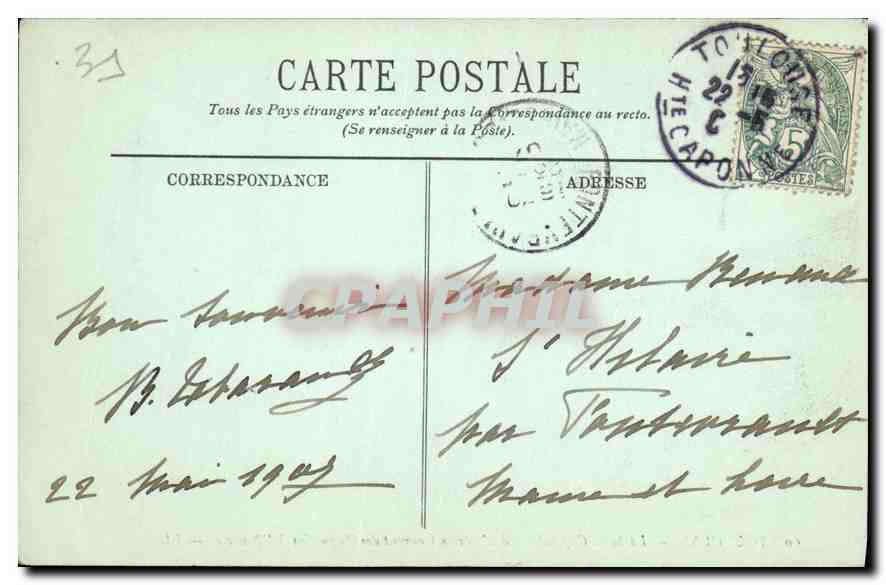 39
CARTE POSTALE
Tous les Pays étrangers n'acceptent pas la Correspondance au recto.
(Se renseigner à la Poste).
CORRESPONDANCE
ADRESSE
TOULOUSE
22
5
Hte GARONNE
POSTES
FONTEVRAULT
CPAPHIL
Bon souvenir
B.
22 Mai 1907
Madame Renaud
St Hilaire
par Fontevrault
Maine et Loire